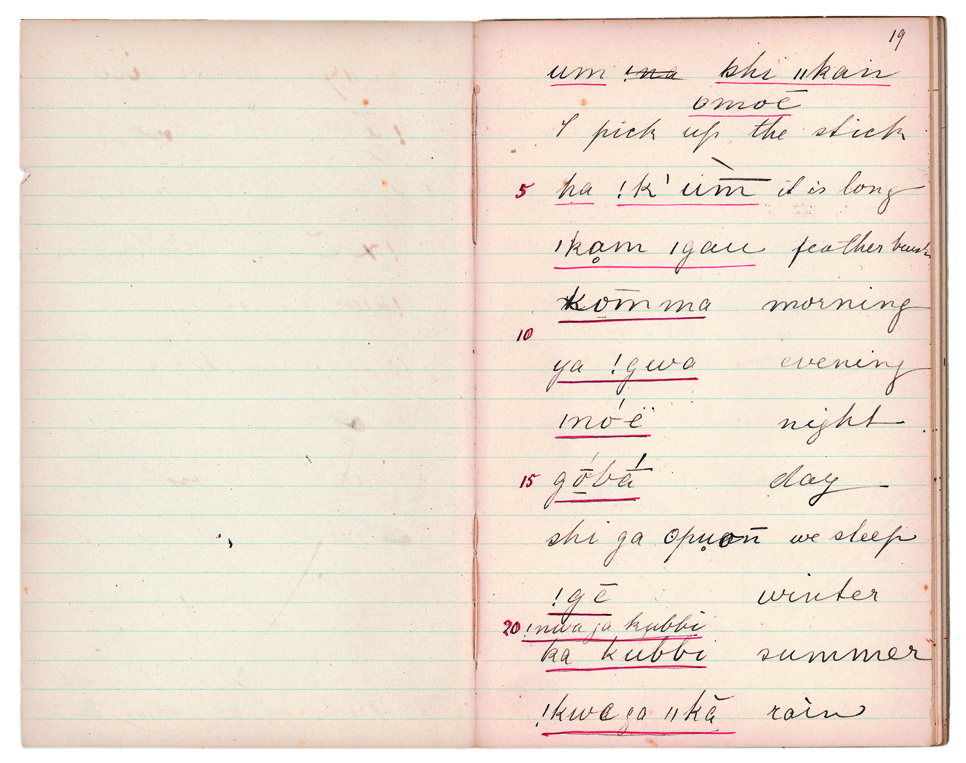 19
um !na shi ǁkan
omoē
I pick up the stick
5 ha !k'um̄ it is long
ǀkạm ǀgau feather brush
kōmma morning
10
ya !gwa evening
ǀnóë night
15 góbá day
shi ga opuon̄ we sleep
!gē winter
20 !nwa ga kubbi
ka kubbi summer
!kwe ga ǁkā rain